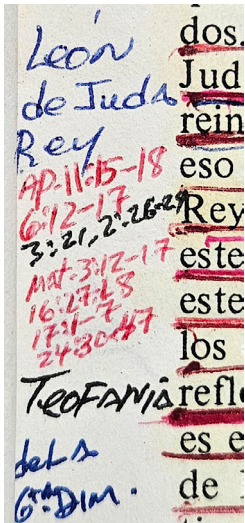 León
de Juda
Rey
AP. 11:15-18
6:12-17
3:21, 2:26-29
Mat. 3:12-17
16:27-28
17:1-7
24:30-47
TEOFANIA
de LA
6ta DIM.
dos.
Jud
rein
eso
Rey
este
este
los
refle
es e
de